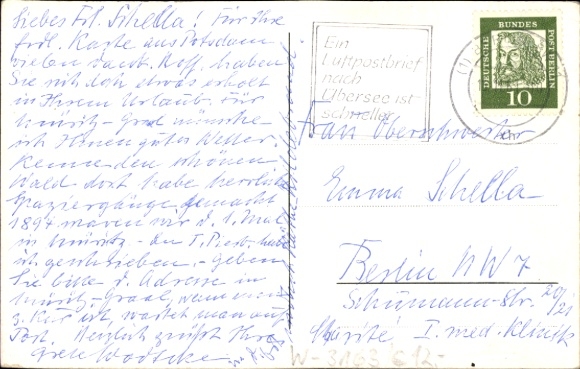 Liebes Frl. Schella! Für Ihre
frdl. Karte aus Potsdam
vielen Dank. Hoff. haben
Sie sich doch etwas erholt
in Ihrem Urlaub. Für
Müritz-Graal wünsche
ich Ihnen gutes Wetter.
Kenne den schönen
Wald dort habe herrliche
Spaziergänge gemacht
1897 waren wir d. 1. Mal
in Müritz - an
ist geschrieben. - Geben
Sie bitte d. Adresse in
Müritz-Graal, wenn man
z. Kur ist, wartet man auf
Post. Herzlich grüßt Ihre
Grete
Ein
Luftpostbrief
nach
Übersee ist
schneller
DEUTSCHE BUNDES POST BERLIN
10
Frau Oberschwester
Emma Schella
Berlin NW 7
Schumann-Str. 20/21
Charité I. med. Klinik
W-3163 € 12.-